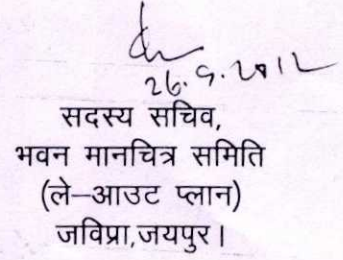 26.9.2012
सदस्य सचिव,
भवन मानचित्र समिति
(ले–आउट प्लान)
जविप्रा,जयपुर।